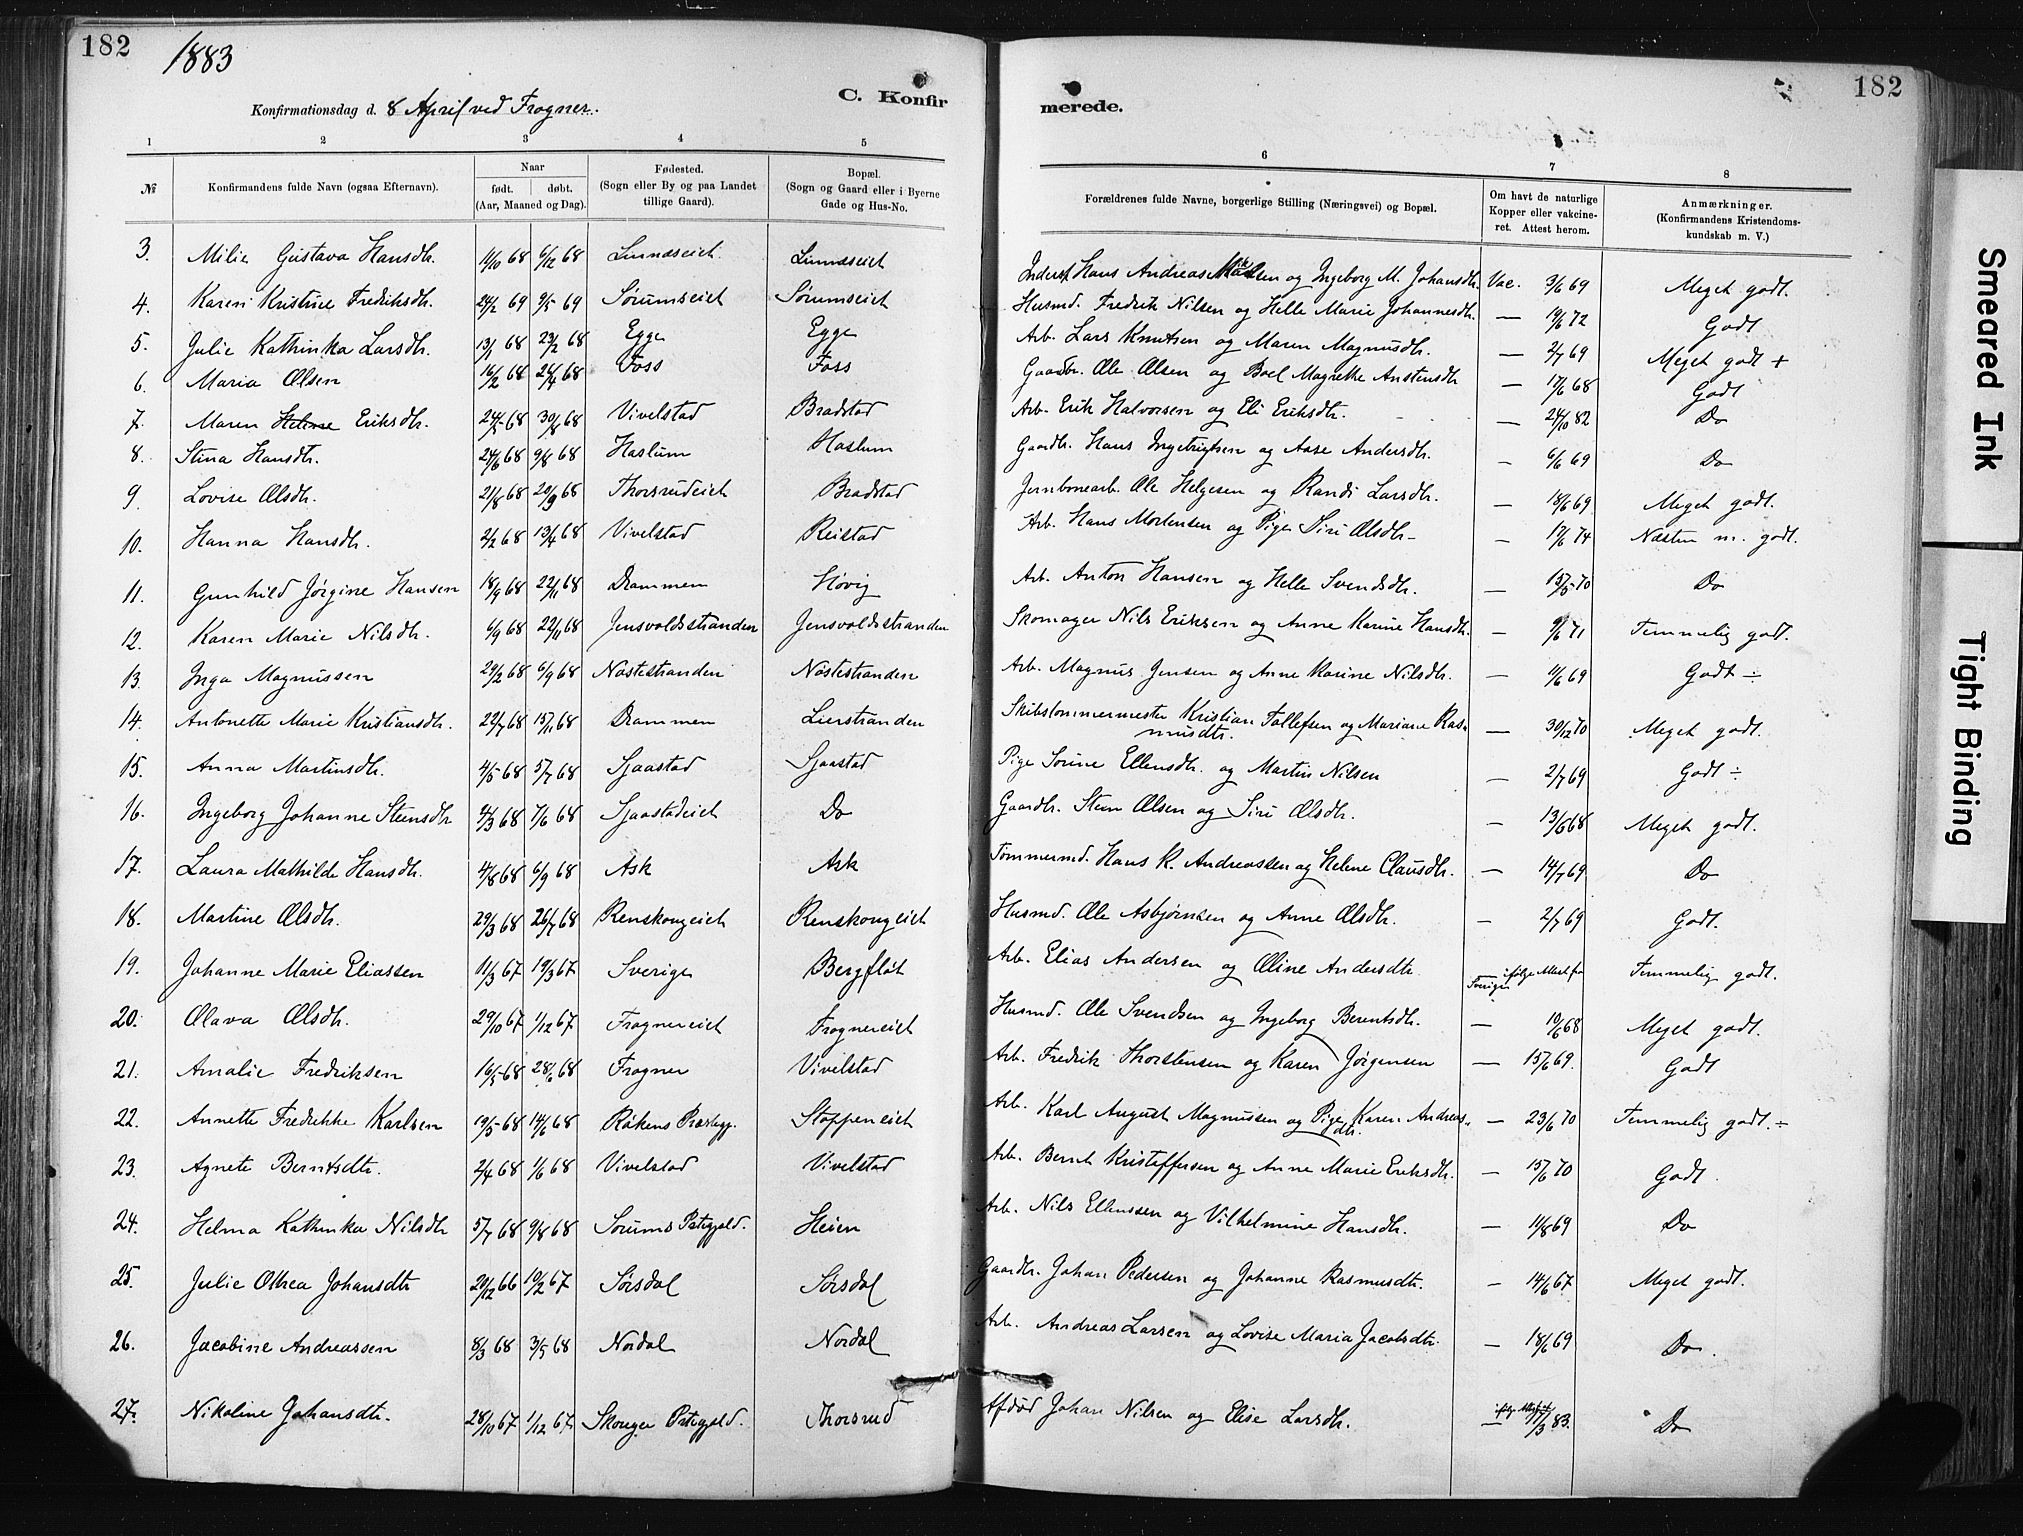 182
1883
Konfirmationsdag d. 8 April ved Frogner.
C. Konfir
merede.
182
1 2 3 4 5
6 7 8
№ Konfirmandens fulde Navn (ogsaa Efternavn). Naar født. døbt. (Aar, Maaned og Dag). Fødested. (Sogn eller By og paa Landet tillige Gaard). Bopæl. (Sogn og Gaard eller i Byerne Gade og Hus-No.
Forældrenes fulde Navne, borgerlige Stilling (Næringsvei) og Bopæl. Om havt de naturlige Kopper eller vakcineret. Attest herom. Anmærkninger. (Konfirmandens Kristendomskundskab m. V.)
3. Milie Gustava Hansdtr. 11/10 68 6/12 68 Linnæseiet Linnæseiet Inderst Hans Andreas og Ingeborg M. Johansdtr. Vac. 3/6 69 Meget godt.
4. Karen Kristine Fredriksdtr. 24/2 69 9/5 69 Sørumseiet Sørumseiet Husmd. Fredrik Nilsen og Helle Marie Johannesdtr. — 19/6 72 Godt
5. Julie Kathinka Larsdtr. 13/1 68 23/2 68 Egge Egge Arb. Lars Knutsen og Maren Magnusdtr. — 2/7 69 Meget godt +
6. Maria Olsen 16/2 68 26/4 68 Foss Foss Gaardbr. Ole Olsen og Boel Magrethe Anstensdtr — 17/6 68 Godt
7. Maren Helene Eriksdtr. 24/5 68 30/8 68 Vivelstad Bradstad Arb. Erik Halvorsen og Eli Eriksdtr. — 24/10 82 Do
8. Stina Hansdtr. 24/6 68 9/8 68 Haslum Haslum Gaardbr. Hans Ingebrigtsen og Aase Andersdtr. — 6/6 69 Do
9. Lovise Olsdtr. 21/8 68 20/9 68 Thorsrudeiet Bradstad Jernbanearb. Ole Helgesen og Randi Larsdtr. — 18/6 69 Meget godt.
10. Hanna Hansdtr. 2/2 68 13/4 68 Vivelstad Reistad Arb. Hans Mortensen og Pige Siri Olsdtr — 17/6 74 Næsten m. godt.
11. Gunhild Jørgine Hansen 18/9 68 22/11 68 Drammen Høvig Arb. Anton Hansen og Helle Svendsdtr. — 15/5 70 Do
12. Karen Marie Nilsdtr. 6/9 68 22/11 68 Jensvoldsstranden Jensvoldsstranden Skomager Nils Eriksen og Anne Karine Hansdtr. — 9/6 71 Temmelig godt.
13. Inga Magnussen 29/2 68 6/9 68 Nøstestranden Nøstestranden Arb. Magnus Jensen og Anne Karine Nilsdtr. — 11/6 69 Godt ÷
14. Antonette Marie Kristiansdtr. 22/7 68 15/11 68 Drammen Lierstranden Skibstømmermester Kristian Tollefsen og Mariane Ras-
musdtr. — 30/12 70 Meget godt.
15. Anna Martinsdtr. 4/5 68 5/7 68 Sjaastad Sjaastad Pige Sørine Ellensdtr. og Martin Nilsen — 2/7 69 Godt ÷
16. Ingeborg Johanne Steensdtr 4/3 68 7/6 68 Sjaastadeiet Do Gaardbr. Steen Olsen og Siri Olsdtr. — 13/6 68 Meget godt.
17. Laura Mathilde Hansdtr. 4/8 68 6/9 68 Ask Ask Tømmermd. Hans K. Andreassen og Helene Clausdtr. — 14/7 69 Do
18. Martine Olsdtr. 29/3 68 26/7 68 Renskougeiet Renskougeiet Husmd. Ole Asbjørnsen og Anne Olsdtr. — 2/7 69 Godt.
19. Johanne Marie Eliassen 11/3 67 19/3 67 Sverige Bergfløt Arb. Elias Andersen og Oline Andersdtr. ifølge Attest fra Sverige Temmelig godt.
20. Olava Olsdtr. 29/10 67 1/12 67 Frognereiet Frognereiet Husmd. Ole Svendsen og Ingeborg Berentsdtr. — 10/6 68 Meget godt.
21. Amalie Fredriksen 16/5 68 28/6 68 Frogner Vivelstad Arb. Fredrik Thorstensen og Karen Jørgensen — 15/6 69. Godt
22. Annette Fredrikke Karlsen 19/5 68 14/6 68 Røkens Præstegj. Stoppeneiet Arb. Karl August Magnussen og Pige Karen Andreas-
dtr. — 23/6 70 Temmelig godt. ÷
23. Agnete Berntsdtr. 2/4 68 1/6 68 Vivelstad Vivelstad Arb. Bernt Kristoffersen og Anne Marie Eriksdtr. — 15/6 70 Godt.
24. Helma Kathinka Nilsdtr 5/7 68 9/8 68 Sørums Pstegjeld. Heien Arb. Nils Ellenssen og Vilhelmine Hansdtr. — 11/8 69 Do
25. Julie Othea Johansdtr 29/12 66 10/2 67 Sørsdal Sørsdal Gaardbr. Johan Pedersen og Johanne Rasmusdtr. — 14/6 67 Meget godt.
26. Jacobine Andreassen 8/3 68 3/5 68 Nordal Nordal Arb. Andreas Larsen og Lovise Maria Jacobsdtr. — 18/6 69 Do.
27. Nikoline Johansdtr. 28/10 67 1/12 67 Skouger Pstegjeld. Thorsrud Afdød Johan Nilsen og Elise Larsdtr. — 17/3 83. Do
Smeared Ink
Tight Binding